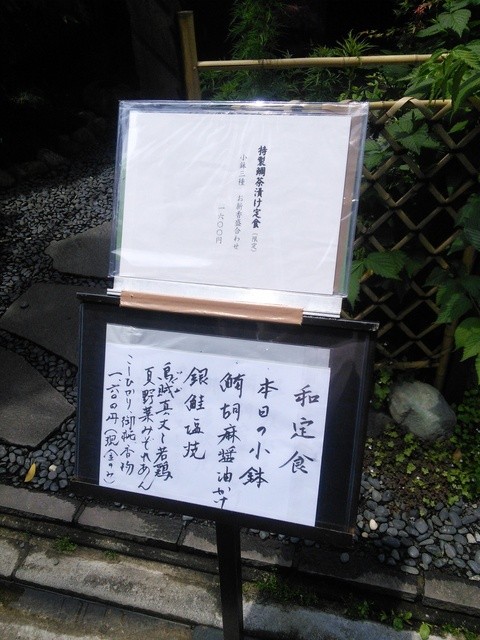 特製鯛茶漬け定食（限定）
小鉢三種　お新香盛合わせ
一六〇〇円
和定食
本日の小鉢
鯛胡麻醤油かけ
銀鮭塩焼
烏賊真丈と若鶏
夏野菜みぞれあん
こしひかり 御飯 香物
一六〇〇円（現金のみ）